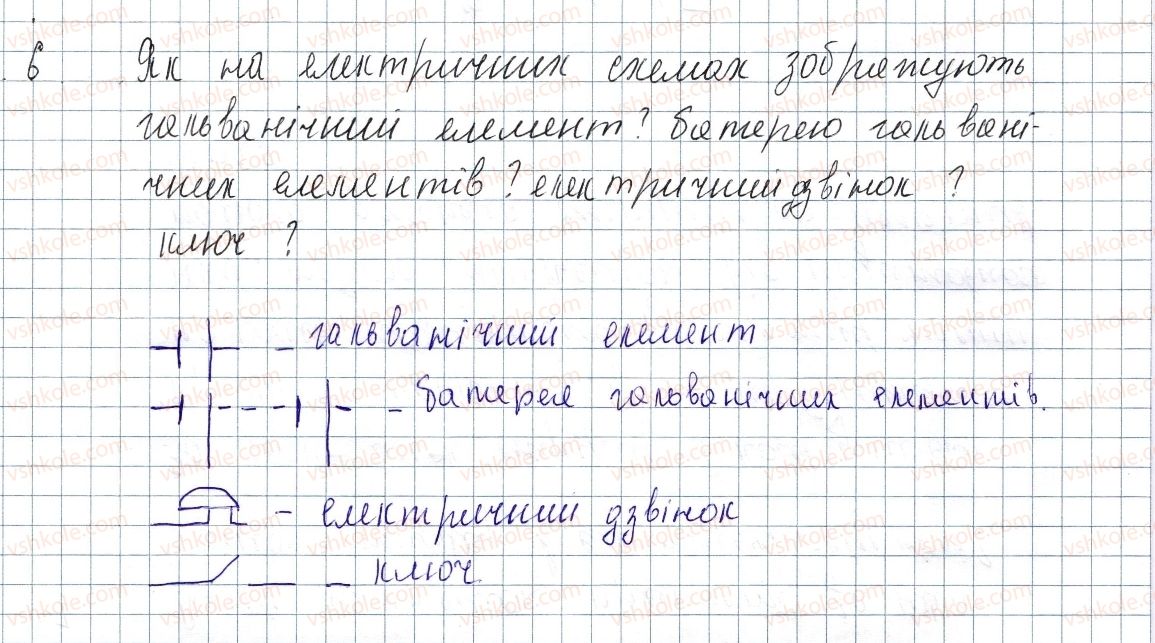 6 Як на електричних схемах зображують
гальванічний елемент? батерею гальвані-
чних елементів? електричний дзвінок?
ключ?
– гальванічний елемент
– батерея гальванічних елементів.
– електричний дзвінок
– ключ.
vshkole.com